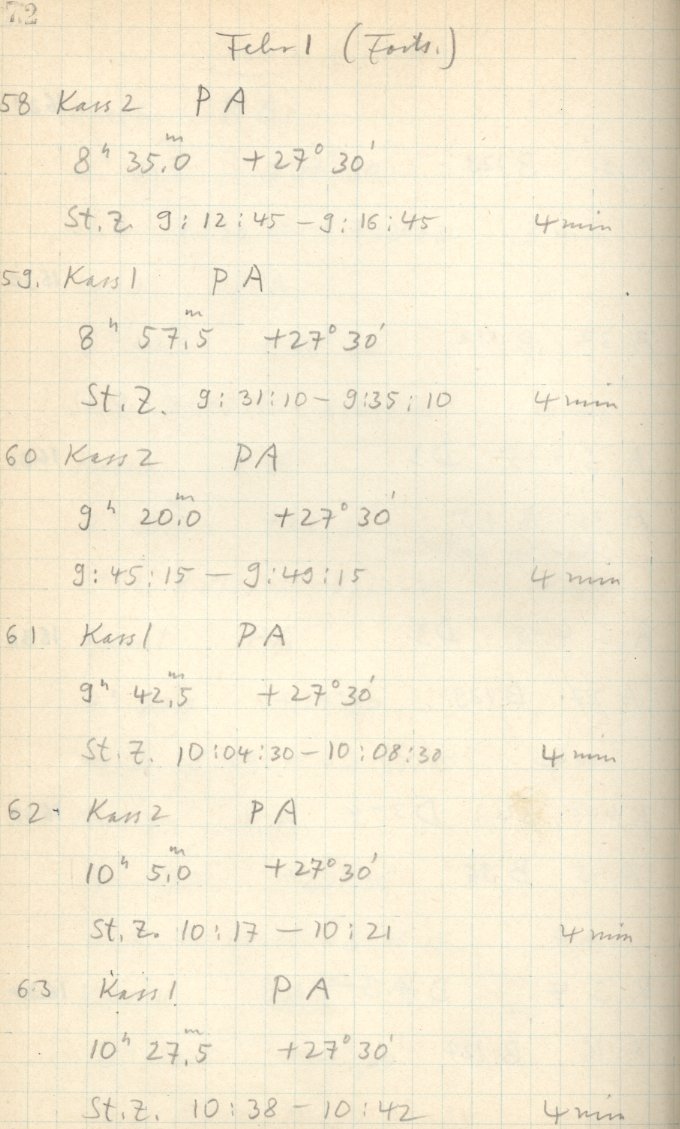 72
Febr 1 (Forts.)
58 Kass 2 P A
8h 35,0m +27° 30'
St. Z. 9:12:45 – 9:16:45 4 min
59. Kass 1 P A
8h 57,5m +27° 30'
St. Z. 9:31:10 – 9:35:10 4 min
60 Kass 2 P A
9h 20,0m +27° 30'
9:45:15 – 9:49:15 4 min
61 Kass 1 P A
9h 42,5m +27° 30'
St. Z. 10:04:30 – 10:08:30 4 min
62 Kass 2 P A
10h 5,0m +27° 30'
St. Z. 10:17 – 10:21 4 min
63 Kass 1 P A
10h 27,5m +27° 30'
St. Z. 10:38 – 10:42 4 min